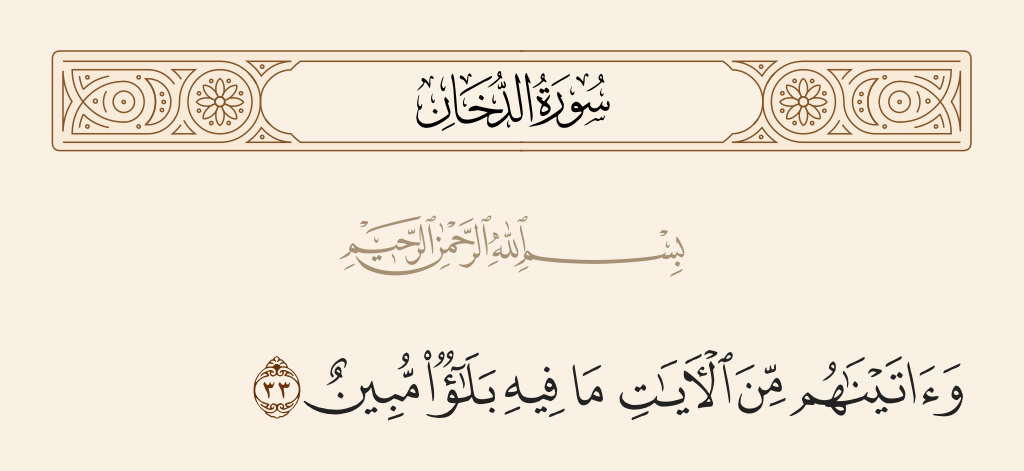 سُورَةُ الدُّخَانِ
بِسْمِ ٱللَّهِ ٱلرَّحْمَٰنِ ٱلرَّحِيمِ
وَءَاتَيْنَٰهُم مِّنَ ٱلْأٓيَٰتِ مَا فِيهِ بَلَٰٓؤٌا۟ مُّبِينٌ ٣٣